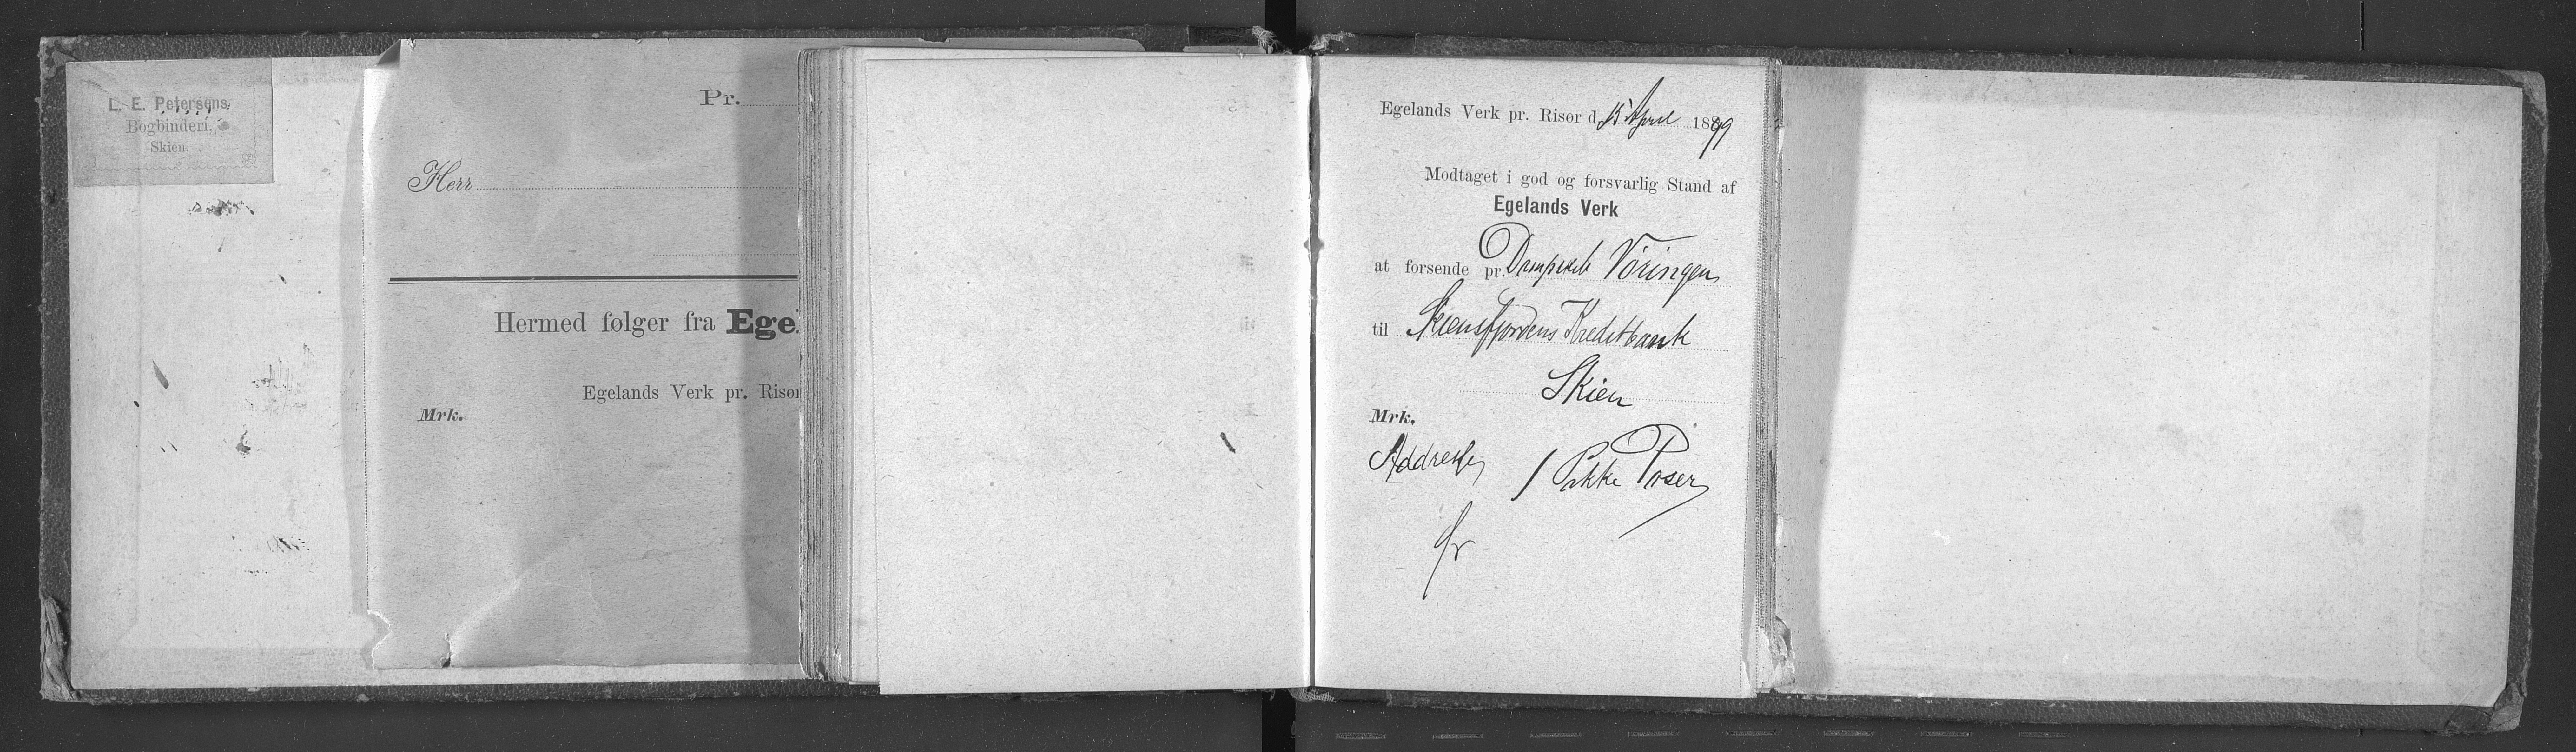 L. E. Petersens
Bogbinderi.
Skien.
Pr.
Herr
Hermed følger fra Egel
Egelands Verk pr. Risør
Mrk.
Egelands Verk pr. Risør d. 15 April 1899
Modtaget i god og forsvarlig Stand af
Egelands Verk
at forsende pr. Dampskib Vöringen
til Skiensfjordens Kreditbank
Skien
Mrk.
Addresse / Pakke Poser
fr